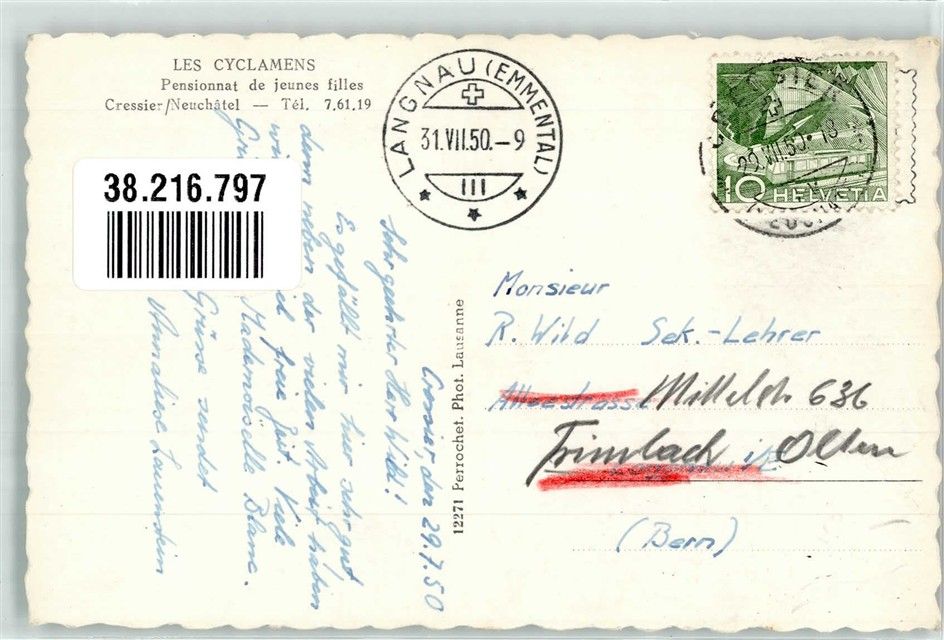 LES CYCLAMENS
Pensionnat de jeunes filles
Cressier/Neuchâtel — Tél. 7,61,19
38.216.797
LANGNAU (EMMENTAL)
31.VII.50.–9
III
10 HELVETIA
12271 Perrochet, Phot. Lausanne
den 29.7.50
Sehr geehrter Herr Wild!
Es gefällt mir hier sehr gut
denn neben der vielen Arbeit haben
wir viel freie Zeit. Viele
Mademoiselle Blanc.
Grüsse sendet
Annaliese
Monsieur
R. Wild Sek.-Lehrer
Mittelstr 636
Trimbach Olten
(Bern)